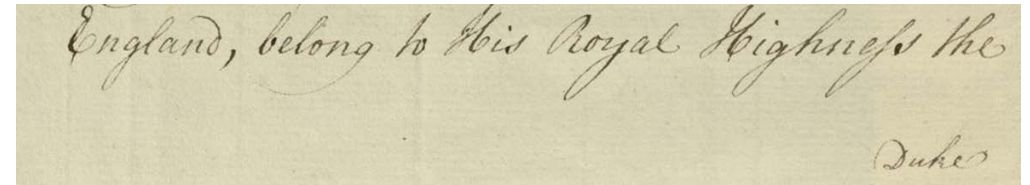 England, belong to His Royal Highneſs the
Duke